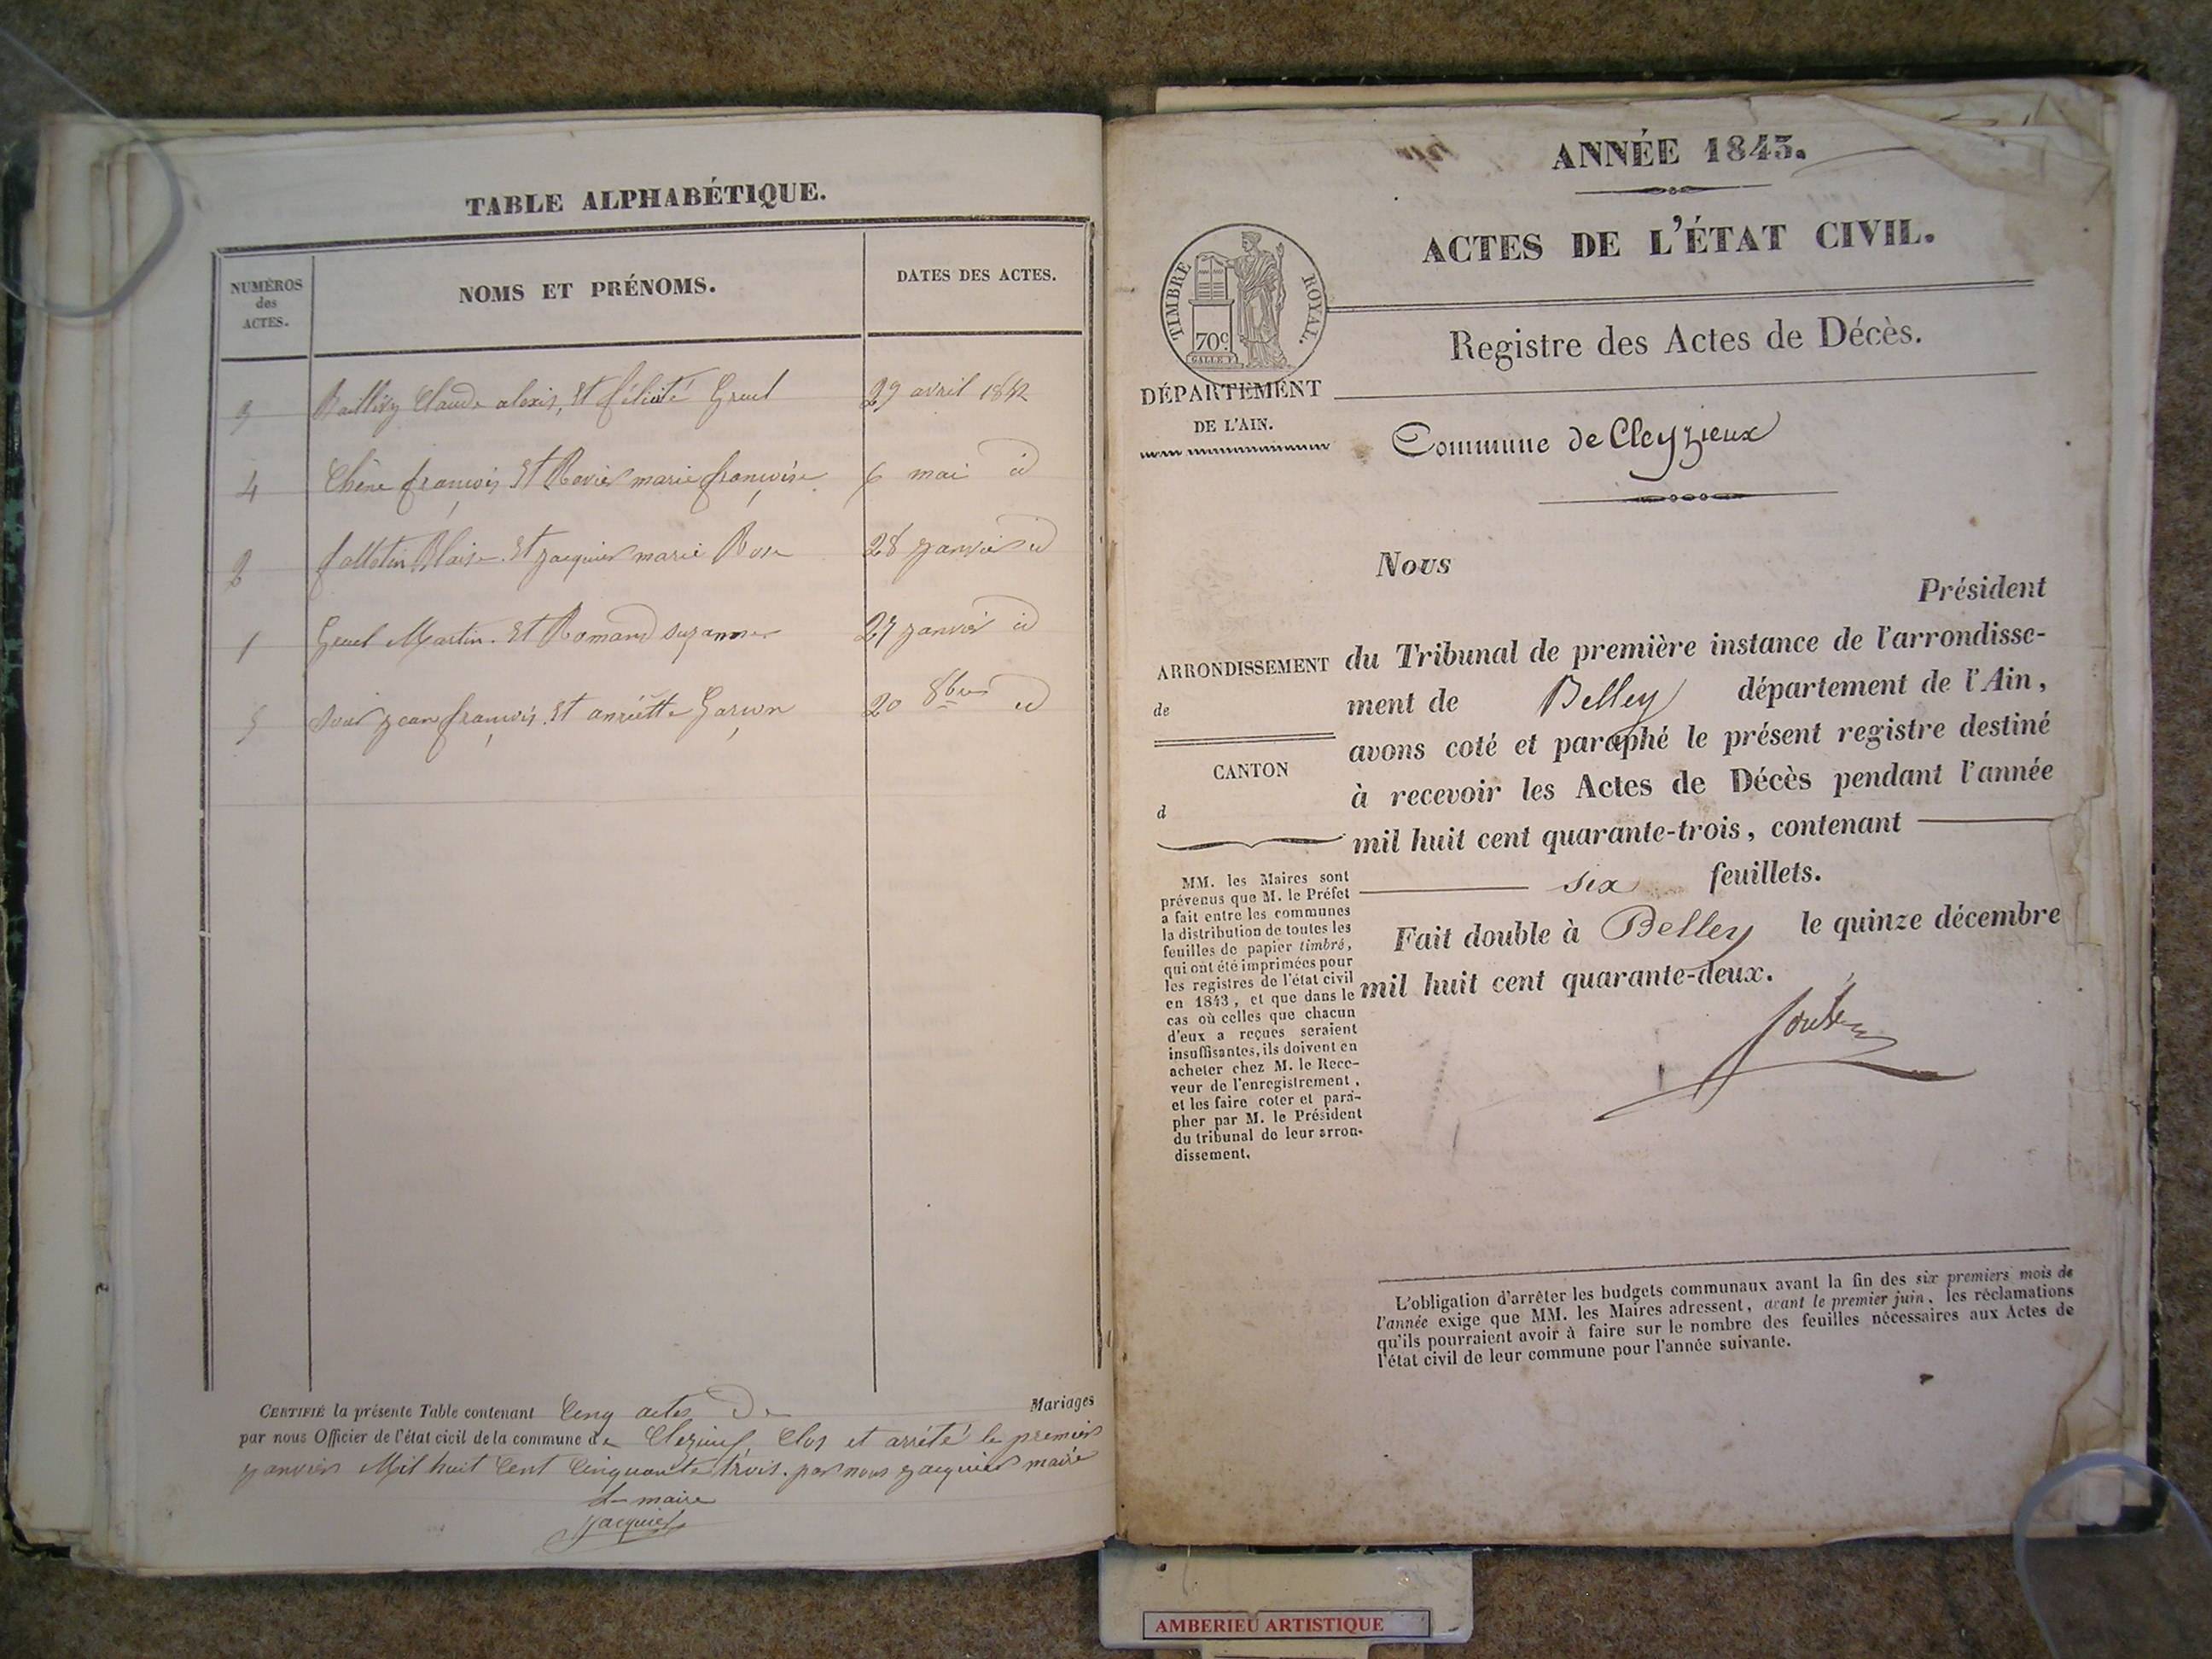 TABLE ALPHABÉTIQUE.
NUMÉROS
des
ACTES.
NOMS ET PRÉNOMS.
DATES DES ACTES.
3 Claude alexis, et félicité Gruel 29 avril 1842
4 Chêne françois et Ravier marie françoise 6 mai id
2 Blaise et jacquier marie Rose 28 janvier id
1 Gruel Martin et Romand suzanne 27 janvier id
5 jean françois et Garçon 20 8bre id
CERTIFIÉ la présente Table contenant Cinq actes De Mariages
par nous Officier de l'état civil de la commune de Clos et arrêté le premier
janvier Mil huit Cent Cinquante trois. par nous jacquier maire
Le maire
jacquier
ANNÉE 1843.
ACTES DE L'ÉTAT CIVIL.
TIMBRE ROYAL.
70c
Registre des Actes de Décès.
DÉPARTEMENT
DE L'AIN.
Commune de Cleyzieux
Nous
Président
ARRONDISSEMENT
de
CANTON
d
du Tribunal de première instance de l'arrondisse-
ment de Belley département de l'Ain,
avons coté et paraphé le présent registre destiné
à recevoir les Actes de Décès pendant l'année
mil huit cent quarante-trois, contenant
six feuillets.
Fait double à Belley le quinze décembre
mil huit cent quarante-deux.
MM. les Maires sont
prévenus que M. le Préfet
a fait entre les communes
la distribution de toutes les
feuilles de papier timbré,
qui ont été imprimées pour
les registres de l'état civil
en 1843, et que dans le
cas où celles que chacun
d'eux a reçues seraient
insuffisantes, ils doivent en
acheter chez M. le Rece-
veur de l'enregistrement,
et les faire coter et para-
pher par M. le Président
du tribunal de leur arron-
dissement.
L'obligation d'arrêter les budgets communaux avant la fin des six premiers mois de
l'année exige que MM. les Maires adressent, avant le premier juin, les réclamations
qu'ils pourraient avoir à faire sur le nombre des feuilles nécessaires aux Actes de
l'état civil de leur commune pour l'année suivante.
AMBERIEU ARTISTIQUE